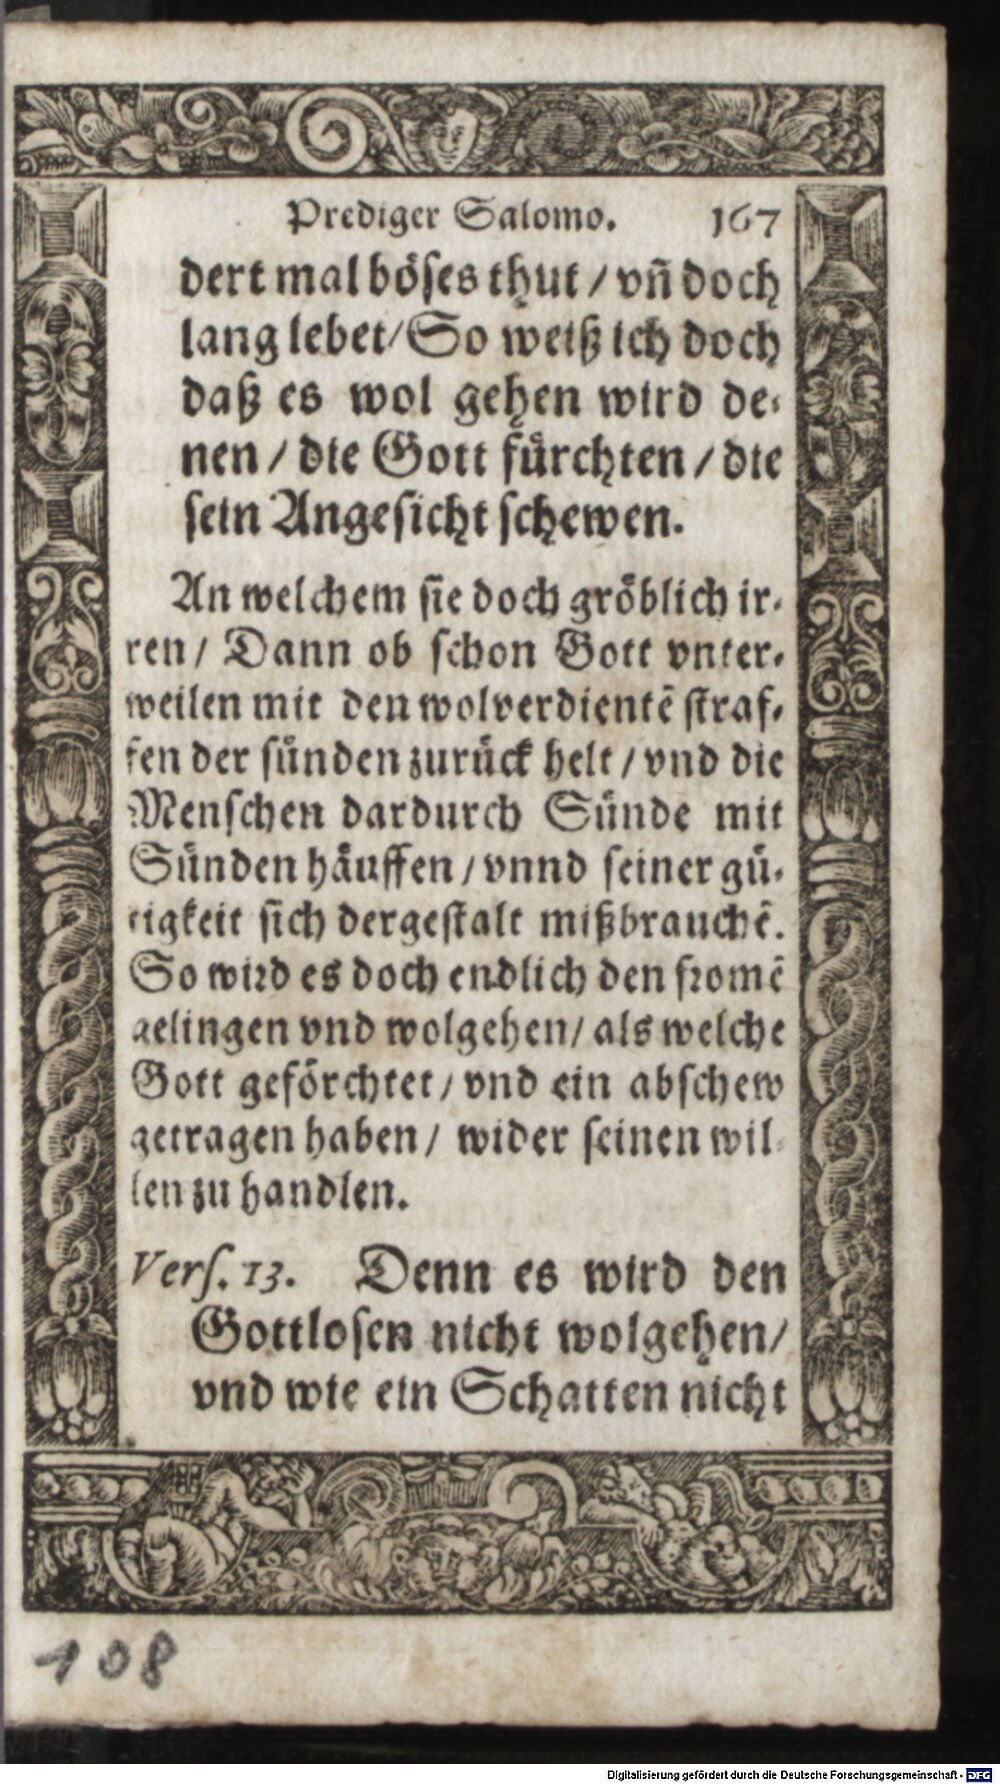 Prediger Salomo. 167
dert mal böses thut / vñ doch
lang lebet / So weiß ich doch
daß es wol gehen wird de-
nen / die Gott fürchten / die
sein Angesicht schewen.
An welchem sie doch gröblich ir-
ren / Dann ob schon Gott vnter-
weilen mit den wolverdientẽ straf-
fen der sünden zurück helt / vnd die
Menschen dardurch Sünde mit
Sünden häuffen / vnnd seiner gü-
tigkeit sich dergestalt mißbrauchẽ.
So wird es doch endlich den fromẽ
gelingen vnd wolgehen / als welche
Gott geförchtet / vnd ein abschew
getragen haben / wider seinen wil-
len zu handlen.
Vers. 13. Denn es wird den
Gottlosen nicht wolgehen /
vnd wie ein Schatten nicht
108
Digitalisierung gefördert durch die Deutsche Forschungsgemeinschaft - DFG